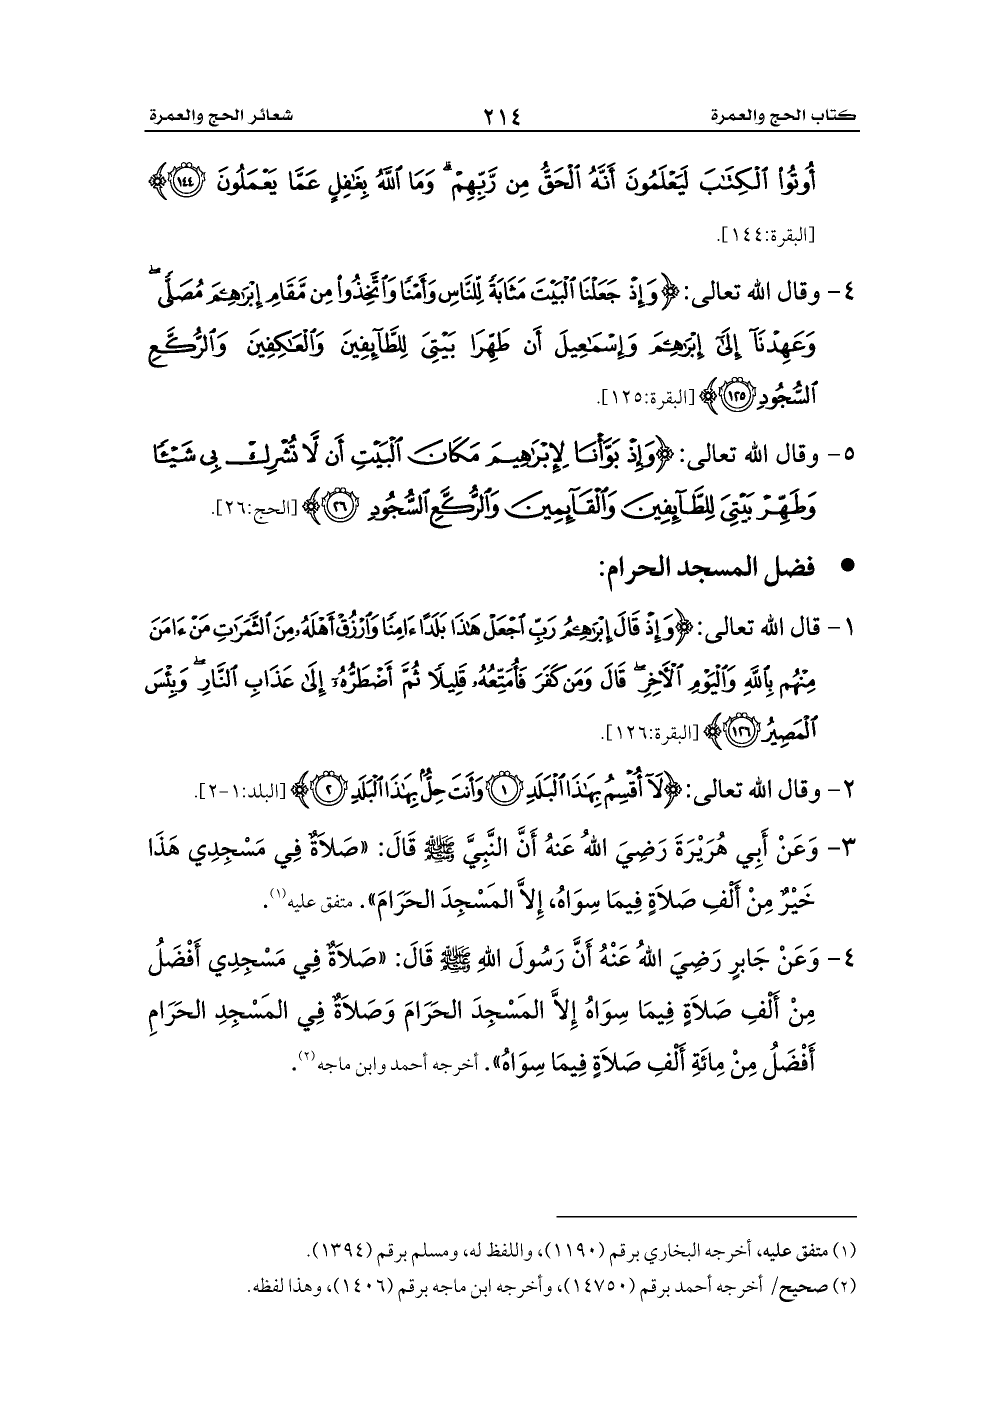 كتاب الحج والعمرة ٢١٤ شعائر الحج والعمرة
أُوتُوا۟ ٱلْكِتَٰبَ لَيَعْلَمُونَ أَنَّهُ ٱلْحَقُّ مِن رَّبِّهِمْ ۗ وَمَا ٱللَّهُ بِغَٰفِلٍ عَمَّا يَعْمَلُونَ ﴿١٤٤﴾
[البقرة:١٤٤].
٤- وقال الله تعالى: ﴿وَإِذْ جَعَلْنَا ٱلْبَيْتَ مَثَابَةً لِّلنَّاسِ وَأَمْنًا وَٱتَّخِذُوا۟ مِن مَّقَامِ إِبْرَٰهِۦمَ مُصَلًّى ۖ
وَعَهِدْنَآ إِلَىٰٓ إِبْرَٰهِۦمَ وَإِسْمَٰعِيلَ أَن طَهِّرَا بَيْتِىَ لِلطَّآئِفِينَ وَٱلْعَٰكِفِينَ وَٱلرُّكَّعِ
ٱلسُّجُودِ ١٢٥﴾ [البقرة:١٢٥].
٥- وقال الله تعالى: ﴿وَإِذْ بَوَّأْنَا لِإِبْرَٰهِيمَ مَكَانَ ٱلْبَيْتِ أَن لَّا تُشْرِكْ بِى شَيْـًٔا
وَطَهِّرْ بَيْتِىَ لِلطَّآئِفِينَ وَٱلْقَآئِمِينَ وَٱلرُّكَّعِ ٱلسُّجُودِ ٢٦﴾ [الحج:٢٦].
● فضل المسجد الحرام:
١- قال الله تعالى: ﴿وَإِذْ قَالَ إِبْرَٰهِۦمُ رَبِّ ٱجْعَلْ هَٰذَا بَلَدًا ءَامِنًا وَٱرْزُقْ أَهْلَهُۥ مِنَ ٱلثَّمَرَٰتِ مَنْ ءَامَنَ
مِنْهُم بِٱللَّهِ وَٱلْيَوْمِ ٱلْءَاخِرِ ۖ قَالَ وَمَن كَفَرَ فَأُمَتِّعُهُۥ قَلِيلًا ثُمَّ أَضْطَرُّهُۥٓ إِلَىٰ عَذَابِ ٱلنَّارِ ۖ وَبِئْسَ
ٱلْمَصِيرُ ١٢٦﴾ [البقرة:١٢٦].
٢- وقال الله تعالى: ﴿لَآ أُقْسِمُ بِهَٰذَا ٱلْبَلَدِ ١ وَأَنتَ حِلٌّۢ بِهَٰذَا ٱلْبَلَدِ ٢﴾ [البلد:١-٢].
٣- وَعَنْ أَبِي هُرَيْرَةَ رَضِيَ اللهُ عَنهُ أَنَّ النَّبِيَّ ﷺ قَالَ: «صَلاَةٌ فِي مَسْجِدِي هَذَا
خَيْرٌ مِنْ أَلْفِ صَلاَةٍ فِيمَا سِوَاهُ، إِلاَّ المَسْجِدَ الحَرَامَ». متفق عليه(١).
٤- وَعَنْ جَابرٍ رَضِيَ اللهُ عَنْهُ أَنَّ رَسُولَ اللهِ ﷺ قَالَ: «صَلاَةٌ فِي مَسْجِدِي أَفْضَلُ
مِنْ أَلْفِ صَلاَةٍ فِيمَا سِوَاهُ إِلاَّ المَسْجِدَ الحَرَامَ وَصَلاَةٌ فِي المَسْجِدِ الحَرَامِ
أَفْضَلُ مِنْ مِائَةِ أَلْفِ صَلاَةٍ فِيمَا سِوَاهُ». أخرجه أحمد وابن ماجه(٢).
(١) متفق عليه، أخرجه البخاري برقم (١١٩٠)، واللفظ له، ومسلم برقم (١٣٩٤).
(٢) صحيح/ أخرجه أحمد برقم (١٤٧٥٠)، وأخرجه ابن ماجه برقم (١٤٠٦)، وهذا لفظه.